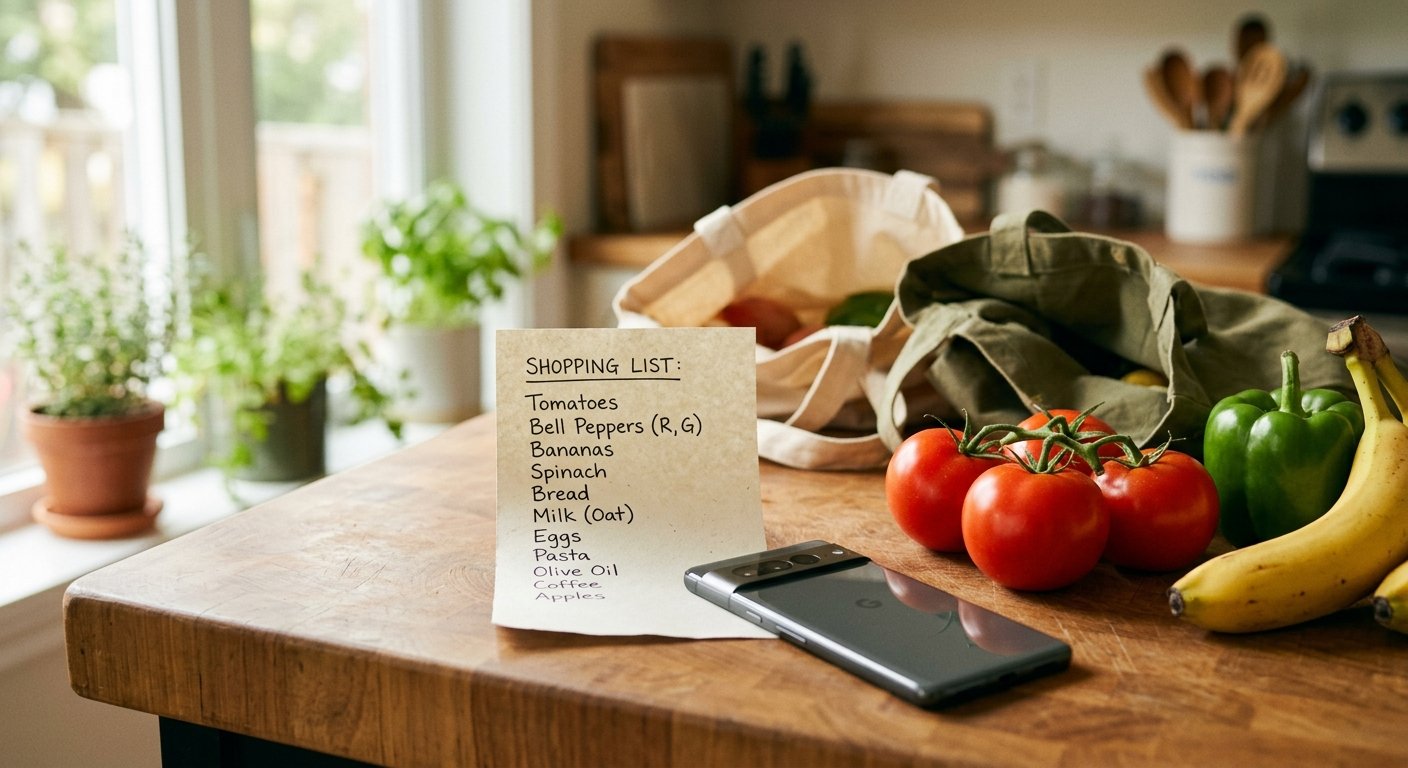 SHOPPING LIST:
Tomatoes
Bell Peppers (R,G)
Bananas
Spinach
Bread
Milk (Oat)
Eggs
Pasta
Olive Oil
Coffee
Apples
G